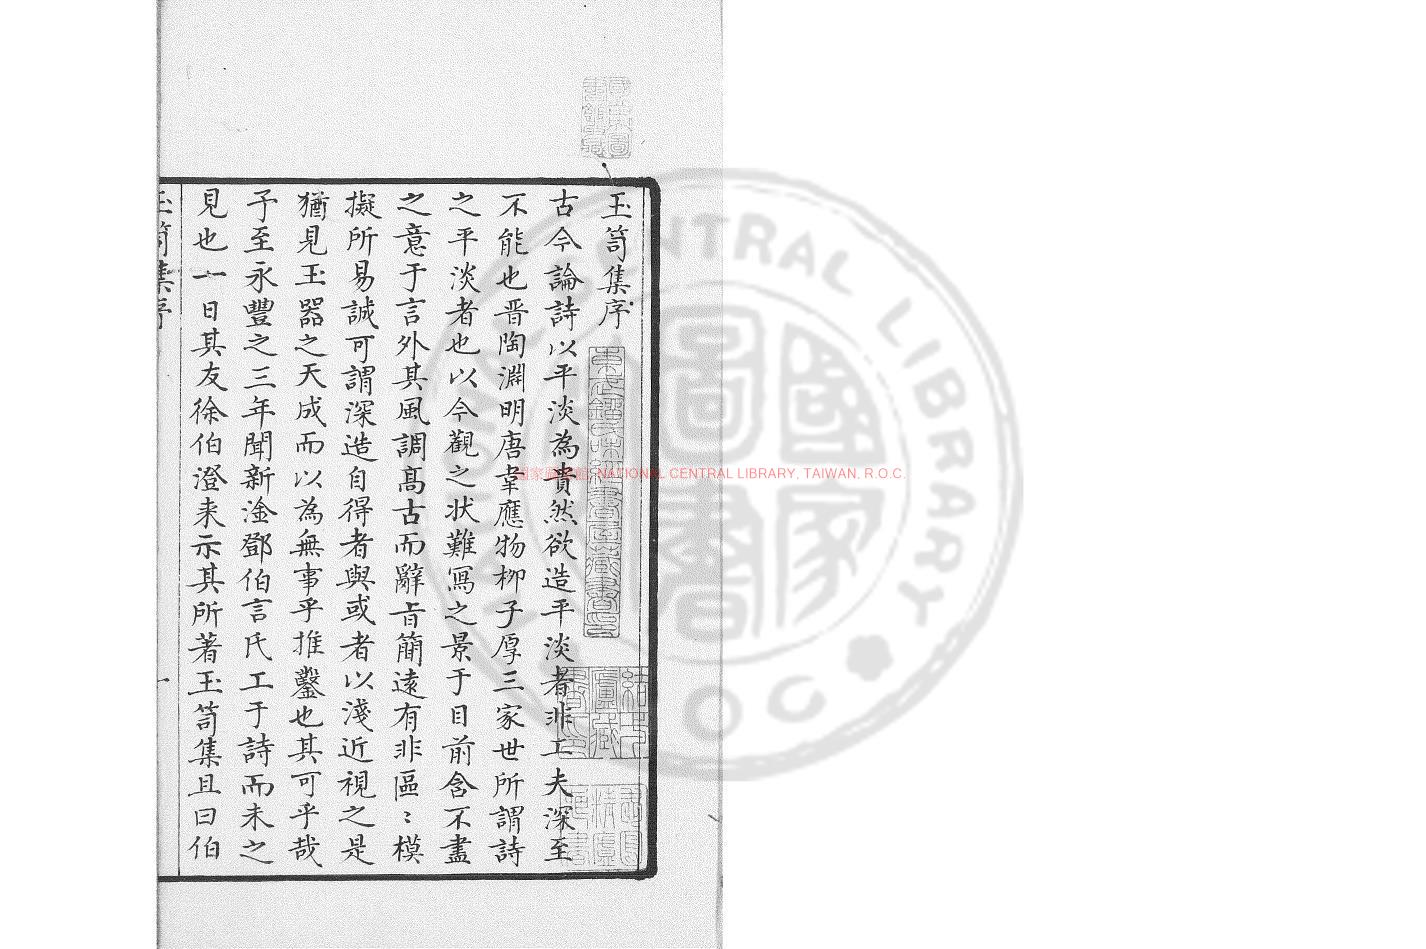 玉笥集序
古今論詩以平淡為貴然欲造平淡者非工夫深至
不能也晋陶淵明唐韋應物栁子厚三家世所謂詩
之平淡者也以今觀之状難寫之景于目前含不盡
之意于言外其風調髙古而辭㫖簡遠有非區〻模
擬所易誠可謂深造自得者與或者以淺近視之是
猶見玉器之天成而以為無事乎推鑿也其可乎哉
予至永豐之三年聞新淦鄧伯言氏工于詩而未之
見也一日其友徐伯澄来示其所著玉笥集且曰伯
玉笥集序
一
國家圖書館 NATIONAL CENTRAL LIBRARY, TAIWAN, R.O.C.
NATIONAL CENTRAL LIBRARY
國家圖書